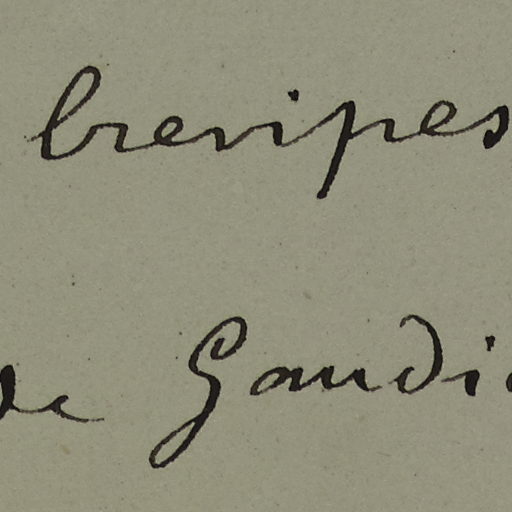 brevipes
de Gaudi